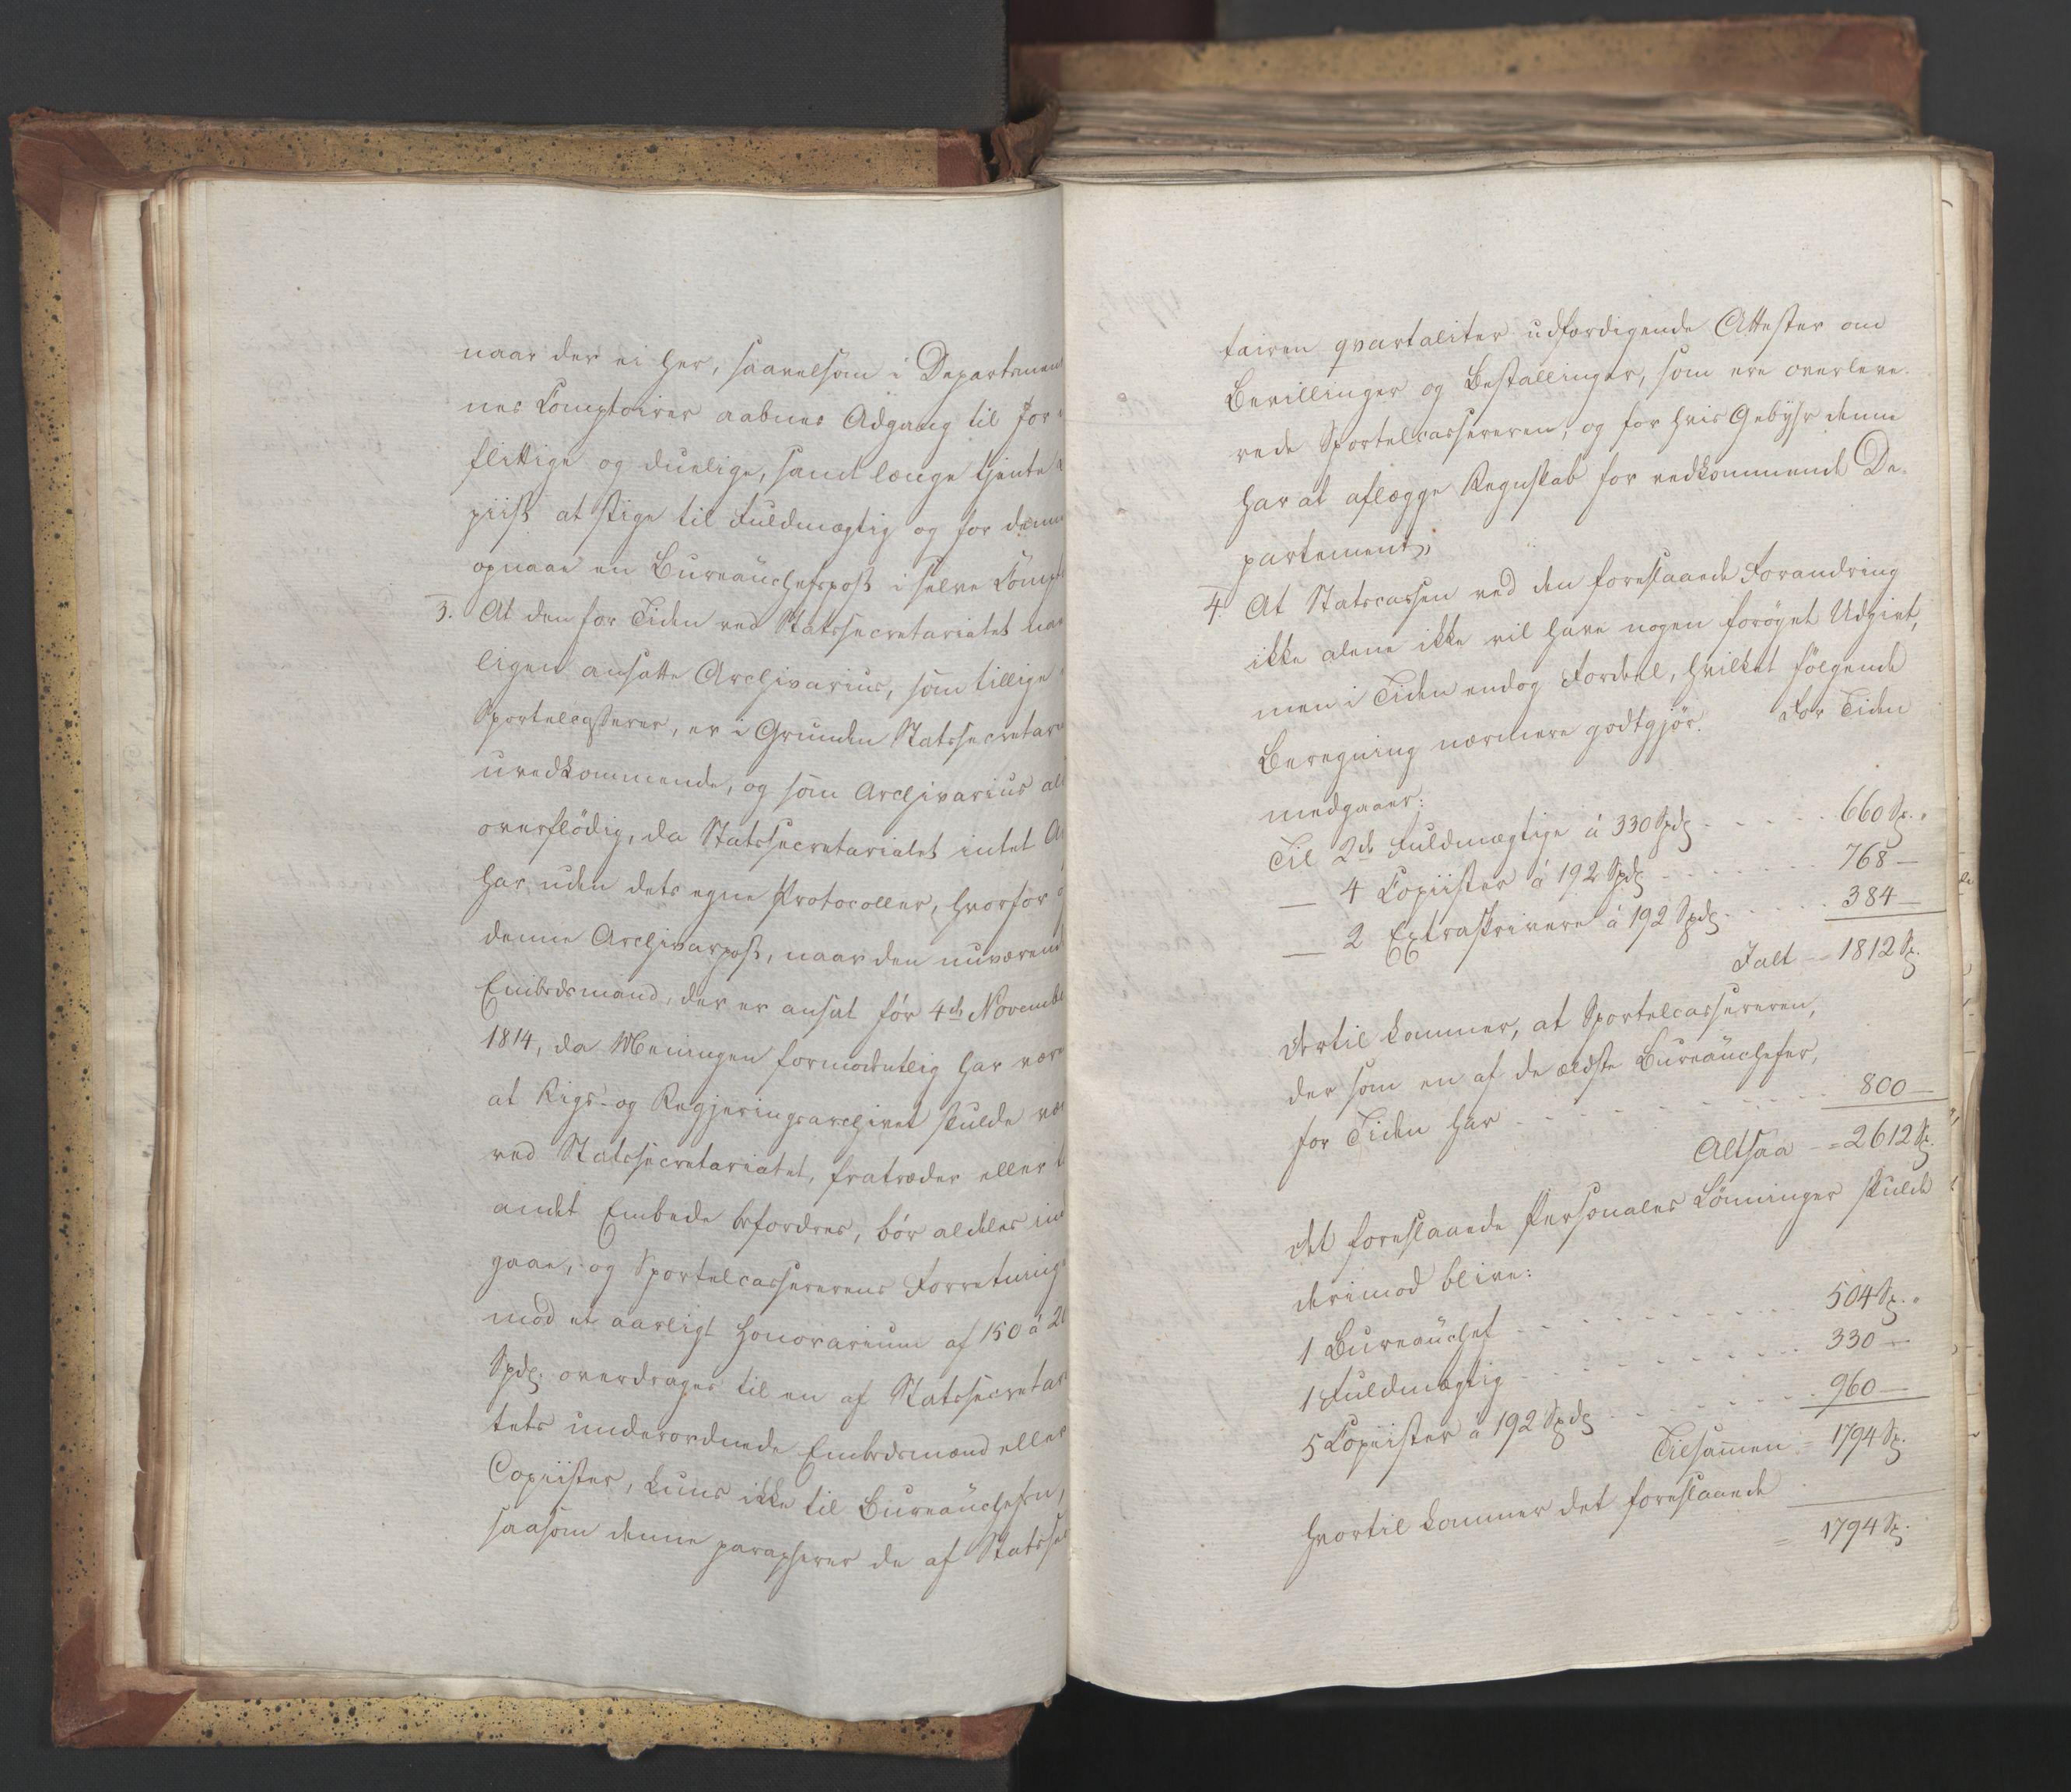 naar der ei her, saavelsom i Departemen
nes Comptoirer aabnes Adgang til for
flittige og duelige, samt længe tjente
piist at stige til Fuldmægtig og for denne
opnaae en Bureauchefspost i selve Compt
3. At den for Tiden ved Statssecretariatet
ligen ansatte Archivarius, som tillige
Sportelcasserer, er i Grunden Statssecretar
uvedkommende, og som Archivarius al
overflødig, da Statssecretariatet intet A
har, uden dets egne Protocoller, hvorfor
denne Archivarpost, naar den nuværend
Embedsmand, der er ansat før 4de Novembe
1814, da Meningen formodentlig har være
at Rigs- og Regjeringsarchivet skulde væ
ved Statssecretariatet, fratræder eller
andet Embede befordres, bør aldeles ind
gaae, og Sportelcassererens Forretning
mod et aarligt Honorarium af 150 á 20
Spd. overdrages til en af Statssecretar
tets underordnede Embedsmænd eller
Copiister, kuns ikke til Bureauchefen,
saasom denne parapherer de af Statsse
tairen qvartaliter udfærdigende Attester om
Bevillinger og Bestallinger, som ere overleve-
rede Sportelcassereren, og for hvis Gebyhr denne
har at aflægge Regnskab for vedkommende De-
partement;
4. At Statscassen ved den foreslaaede Forandring
ikke alene ikke vil have nogen forøget Udgivt,
men i Tiden endog Fordeel, hvilket følgende
Beregning nærmere godtgjør. For Tiden
medgaaer:
Til 2de Fuldmægtige á 330 Spd. - - - - 660 Sp.
— 4 Copiister á 192 Spd. - - - - - 768 —
— 2 Extraskrivere á 192 Spd. - - - - 384 —
Ialt — 1812 Sp.
Dertil kommer, at Sportelcassereren,
der som en af de ældste Bureauchefer,
for Tiden har - - - - - - - - 800 —
Altsaa - = 2612 Sp.
Det foreslaaede Personales Lønninger skulde
derimod blive:
1 Bureauchef - - - - - - - 504 Sp.
1 Fuldmægtig - - - - - - - 330 —
5 Copiister á 192 Spd. - - - - - 960 —
Tilsammen = 1794 Sp.
Hvortil kommer det foreslaaede
= 1794 Sp.